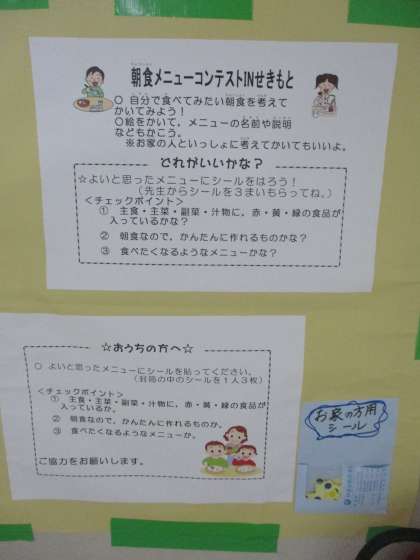 朝食メニューコンテストINせきもと
○ 自分で食べてみたい朝食を考えて
かいてみよう！
○絵をかいて，メニューの名前や説明
などもかこう。
※お家の人といっしょに考えてかいてもいいよ。
どれがいいかな？
☆よいと思ったメニューにシールをはろう！
（先生からシールを３まいもらってね。）
＜チェックポイント＞
① 主食・主菜・副菜・汁物に，赤・黄・緑の食品が
入っているかな？
② 朝食なので，かんたんに作れるものかな？
③ 食べたくなるようなメニューかな？
☆おうちの方へ☆
○ よいと思ったメニューにシールを貼ってください。
（封筒の中のシールを１人３枚）
＜チェックポイント＞
① 主食・主菜・副菜・汁物に，赤・黄・緑の食品が
入っているか。
② 朝食なので，かんたんに作れるものか。
③ 食べたくなるようなメニューか。
ご協力をお願いします。
お家の方用
シール